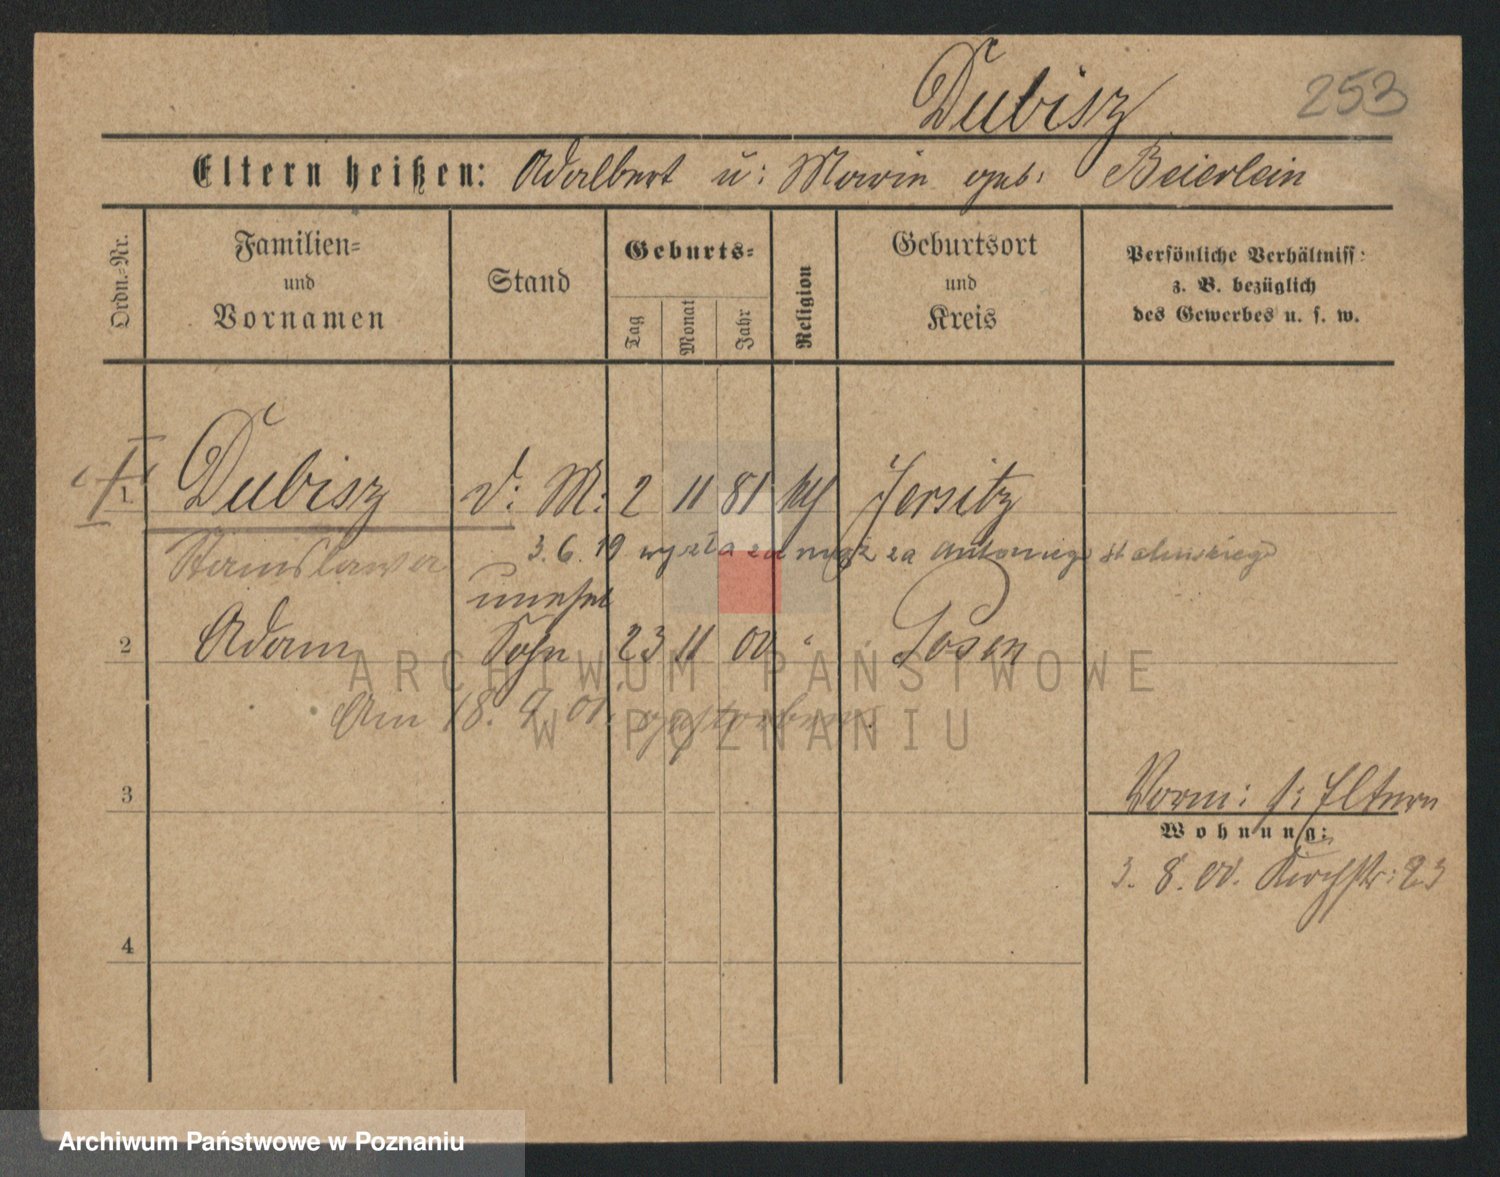 Dubisz 253
Eltern heißen: Adalbert u: Marie geb: Beierlein
Ordn.-Nr.
Familien- und Vornamen
Stand
Geburts-
Tag Monat Jahr
Religion
Geburtsort und Kreis
Persönliche Verhältniss: z. B. bezüglich des Gewerbes u. s. w.
1 Dubisz d: M: 2 11 81 Jersitz
Stanislawa 3.6.19 wyszła za mąż za Antoniego
unehel
2 Adam Sohn 23 11 00 " Posen
Am 18. 9. 01. gestorben.
3
Vorm: s: Eltern
Wohnung:
3. 8. 00. Kirchstr: 23
4
ARCHIWUM PAŃSTWOWE
W POZNANIU
Archiwum Państwowe w Poznaniu